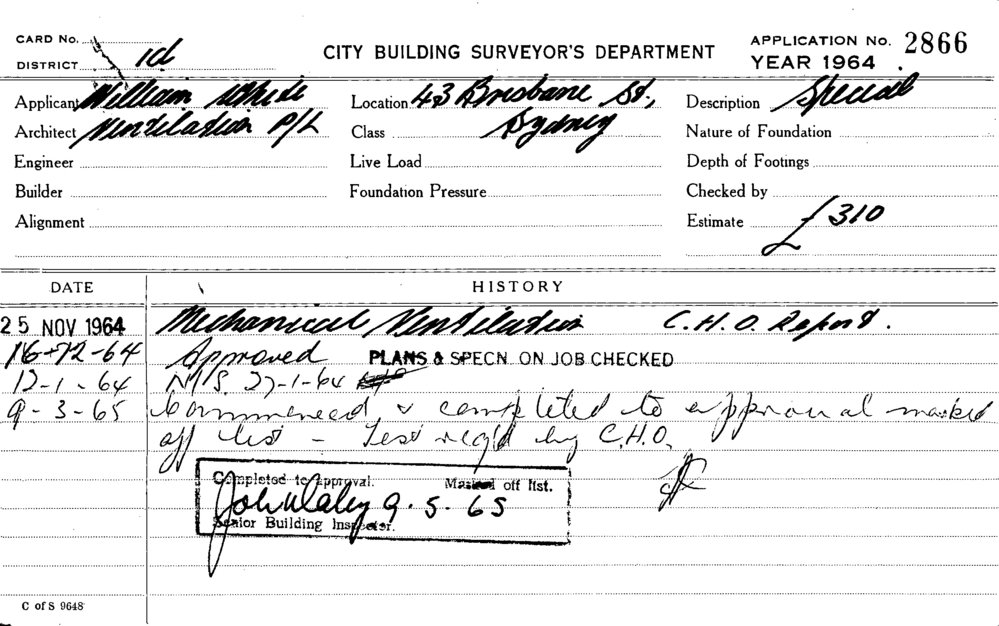 CARD No.
DISTRICT 1d
CITY BUILDING SURVEYOR'S DEPARTMENT
APPLICATION No. 2866
YEAR 1964
Applicant William White
Location 43 Brisbane St.,
Description Special
Architect Ventilation P/L
Class Sydney
Nature of Foundation
Engineer
Live Load
Depth of Footings
Builder
Foundation Pressure
Checked by
Alignment
Estimate £310
DATE HISTORY
25 NOV 1964 Mechanical Ventilation C.H.O. Report.
16-12-64 Approved PLANS & SPECN ON JOB CHECKED
12-1-64 N/S. 27-1-64
9-3-65 Commenced & completed to approval marked
off list - Test req'd by C.H.O.
Completed to approval. Marked off list.
John Daley 9.5.65
Senior Building Inspector.
C of S 9648